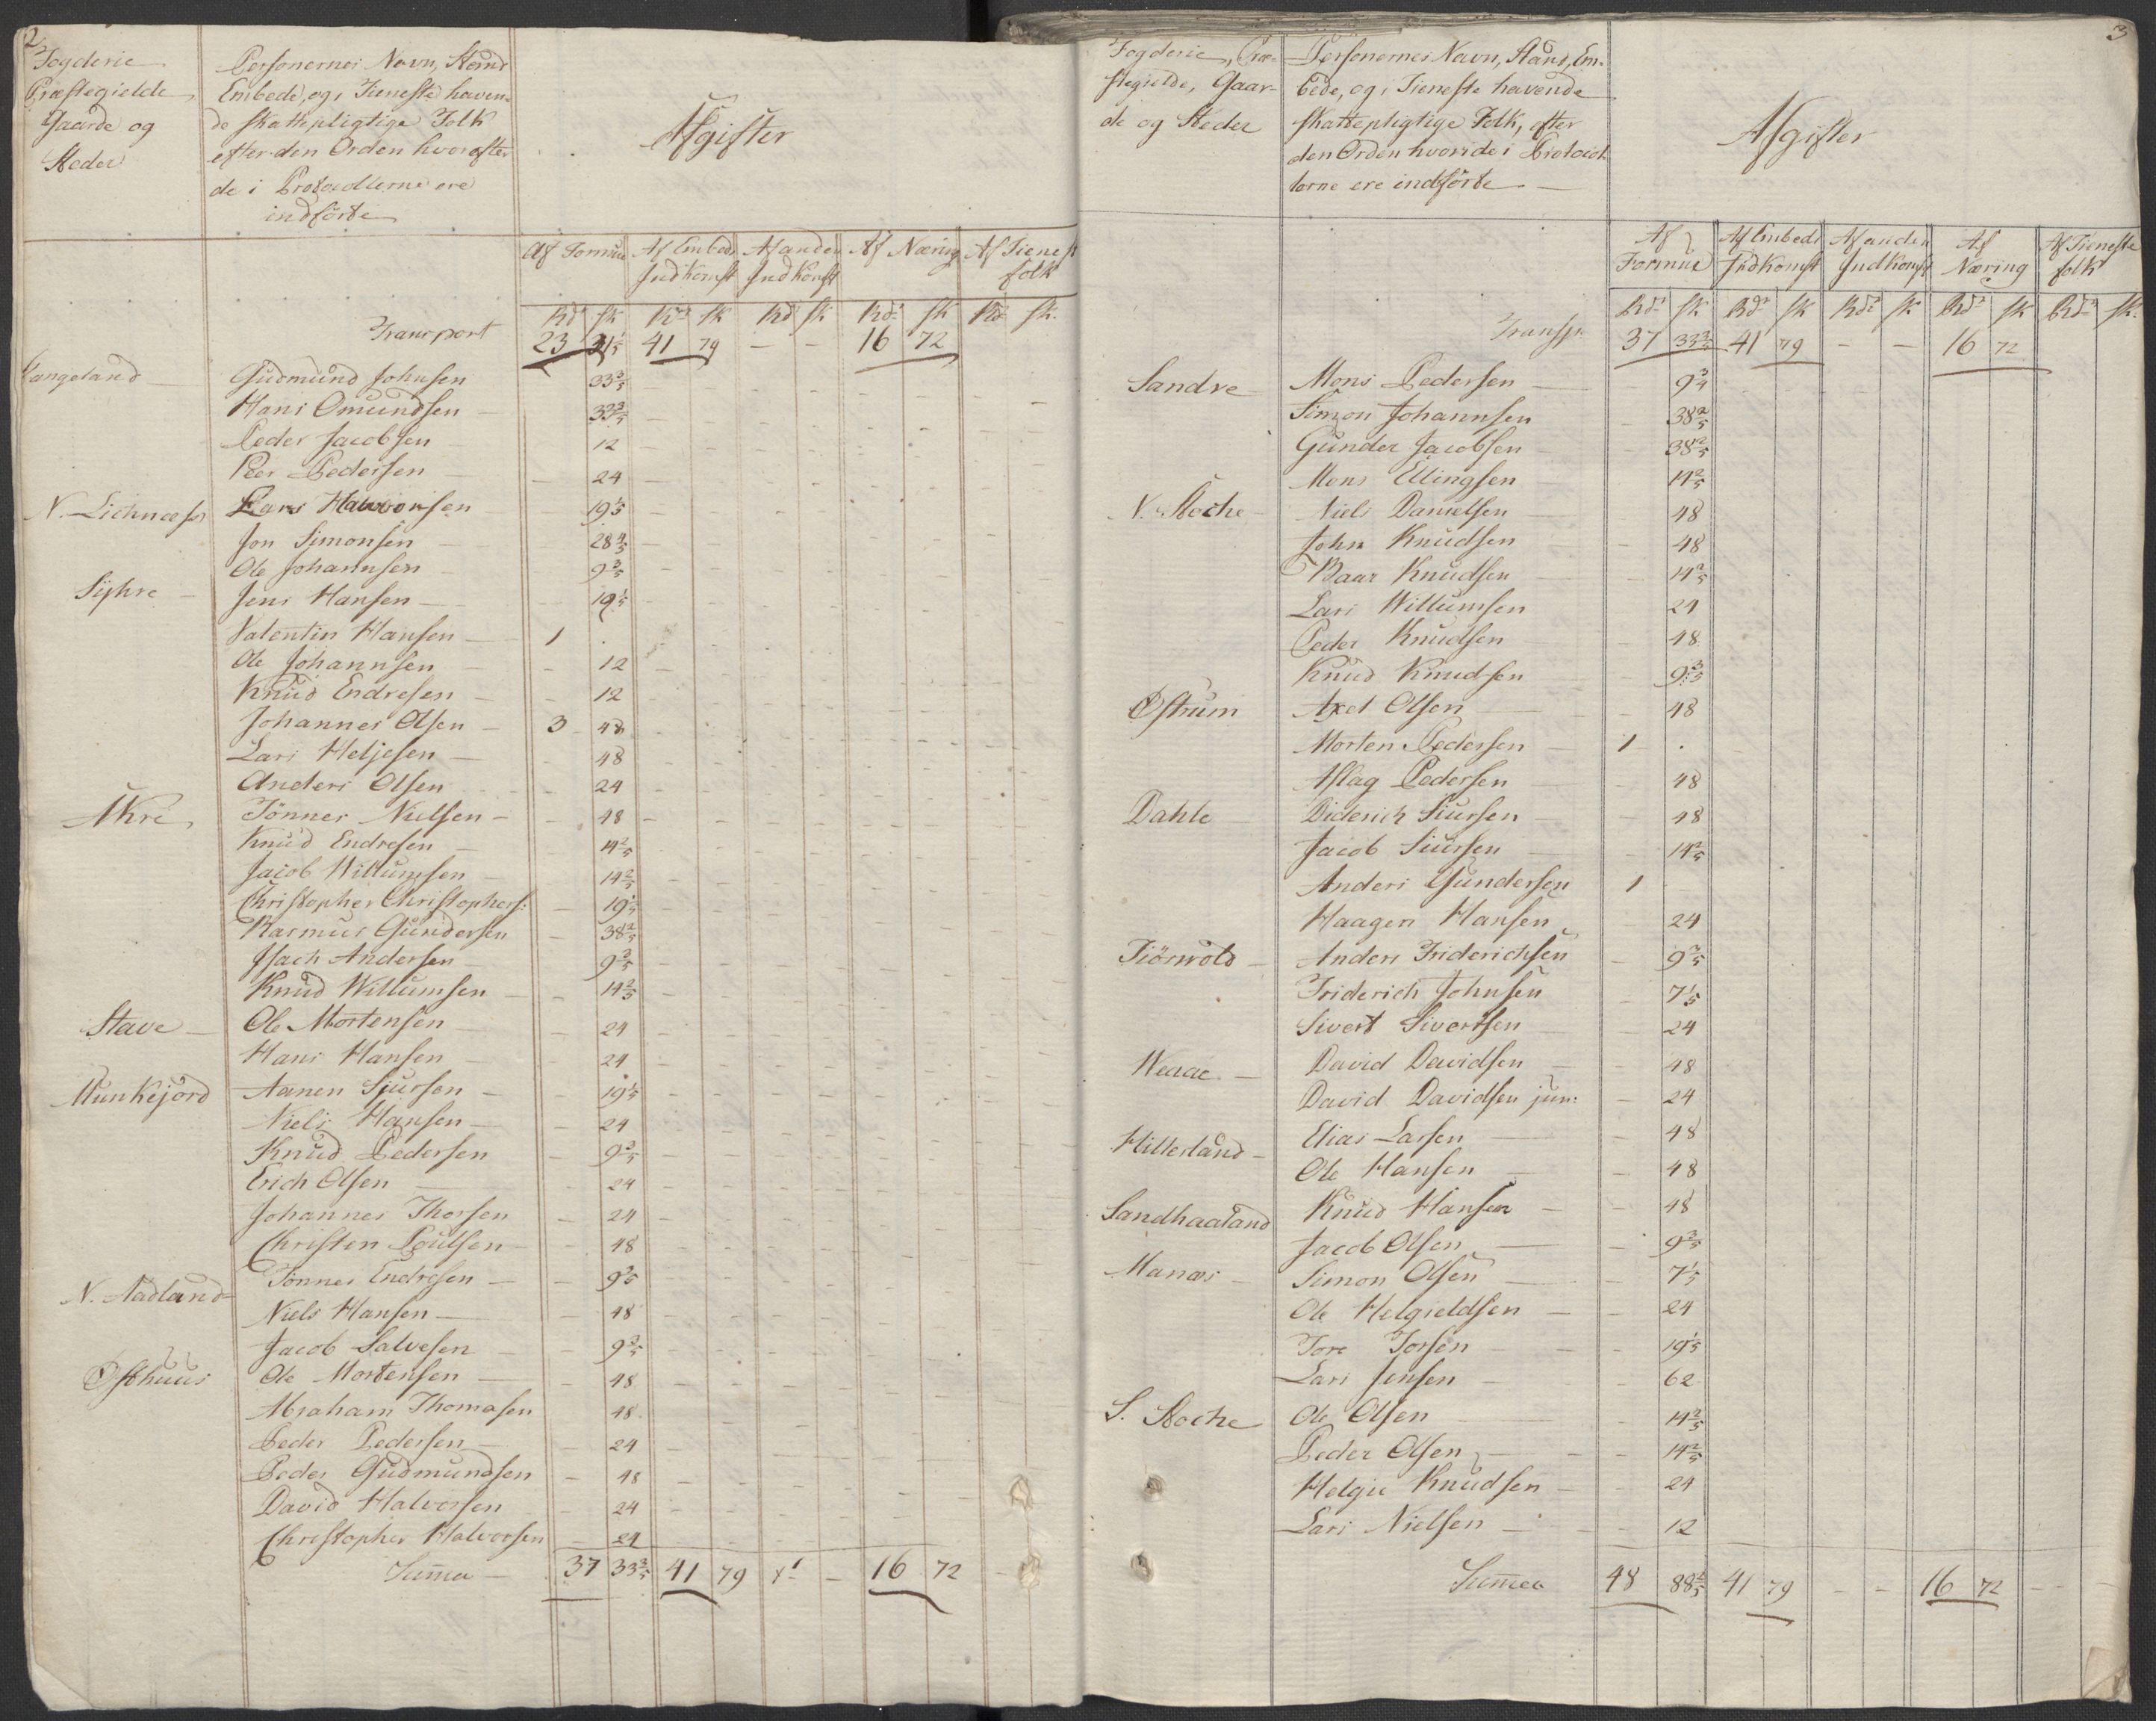 2
Fogderie Præstegielde Gaarde og Steder
Personernes Navn, Stand Embede, og i Tieneste havende skattepligtige Folk efter den Orden hvorefter de i Protocollerne ere indførte
Afgifter
Af Formue | Af Embeds Indkomst | Af anden Indkomst | Af Næring | Af Tieneste folk
Rdr sk Rdr sk Rdr sk Rdr sk Rdr sk.
Transport 23 31 1/5 41 79 - - 16 72
Langeland Gudmund Johnsen 33 3/5
Hans Omundsen 33 3/5
Peder Jacobsen 12
Peer Pedersen 24
N. Lichnæs Lars Halvorsen 19 1/5
Jon Simonsen 28 4/5
Ole Johannsen 9 3/5
Syhre Jens Hansen 19 1/5
Valentin Hansen 1 .
Ole Johannsen 12
Knud Endresen 12
Johannes Olsen 3 48
Lars Heljesen 48
Anders Olsen 24
Akre Tönnes Nielsen 48
Knud Endresen 14 2/5
Jacob Willumsen 14 2/5
Christopher Christophers: 19 1/5
Rasmus Gundersen 38 2/5
Isach Andersen 9 3/5
Knud Willumsen 14 2/5
Stave Ole Mortensen 24
Hans Hansen 24
Munkejord Aanen Siursen 19 1/5
Niels Hansen 24
Knud Pedersen 9 3/5
Erich Olsen 24
Johannes Thorsen 24
Christen Poulsen 48
N. Aadland Tönnes Endresen 9 3/5
Niels Hansen 48
Jacob Salvesen 9 3/5
Østhuus Ole Mortensen 48
Abraham Thomasen 48
Peder Pedersen 24
Peder Gudmundsen 48
David Halvorsen 24
Christopher Halvorsen 24
Summa 37 33 3/5 41 79 - 16 72
3
Fogderie, Præstegielde, Gaarde og Steder
Personernes Navn, Stand, Embede, og i Tieneste havende skattepligtige Folk, efter den Orden hvori de i Protocollerne ere indførte
Afgifter
Af Formue | Af Embeds Indkomst | Af anden Indkomst | Af Næring | Af Tieneste folk
Rdr sk Rdr sk Rdr sk Rdr sk Rdr sk.
Transp. 37 33 3/5 41 79 - - 16 72
Sandve Mons Pedersen 9 3/4
Simon Johannsen 38 2/5
Gunder Jacobsen 38 2/5
Mons Ellingsen 14 2/5
N. Stoche Niels Danielsen 48
John Knudsen 48
Baar Knudsen 14 2/5
Lars Willumsen 24
Peder Knudsen 48
Knud Knudsen 9 3/5
Østrum Axel Olsen 48
Morten Pedersen 1 .
Aslag Pedersen 48
Dahle Diderich Siursen 48
Jacob Siursen 14 2/5
Anders Gundersen 1
Haagen Hansen 24
Tiösvold Anders Friderichsen 9 3/5
Friderich Johnsen 7 1/5
Sivert Sivertsen 24
Weaae David Davidsen 48
David Davidsen jun: 24
Hillesland Elias Larsen 48
Ole Hansen 48
Sandhaaland Knud Hansen 48
Jacob Olsen 9 3/5
Manæs Simon Olsen 7 1/5
Ole Helgieldsen 24
Tore Torsen 19 1/5
Lars Jensen 62
S. Stoche Ole Olsen 14 2/5
Peder Olsen 14 2/5
Helgie Knudsen 24
Lars Nielsen 12
Summa 48 88 2/5 41 79 - - 16 72 -